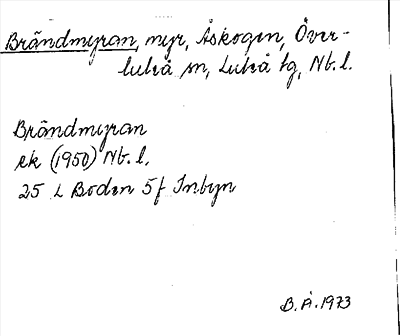 Brändmyran, myr, Åskogen, Över-
luleå sn, Luleå tg, Nb. l.
Brändmyran
ek (1950) Nb. l.
25 L Boden 5f Inbyn
B. Å. 1973